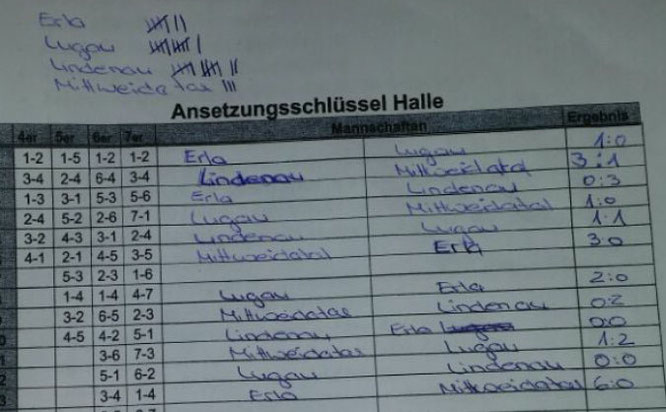 Erla
Lugau
Lindenau
Mittweidatal
Ansetzungsschlüssel Halle
4er 5er 6er 7er Mannschaften Ergebnis
1-2 1-5 1-2 1-2 Erla Lugau 1:0
3-4 2-4 6-4 3-4 Lindenau Mittweidatal 3:1
1-3 3-1 5-3 5-6 Erla Lindenau 0:3
2-4 5-2 2-6 7-1 Lugau Mittweidatal 1:0
3-2 4-3 3-1 2-4 Lindenau Lugau 1:1
4-1 2-1 4-5 3-5 Mittweidatal Erla 3:0
5-3 2-3 1-6
1-4 1-4 4-7 Lugau Erla 2:0
3-2 6-5 2-3 Mittweidatal Lindenau 0:2
4-5 4-2 5-1 Lindenau Erla 0:0
3-6 7-3 Mittweidatal Lugau 1:2
5-1 6-2 Lugau Lindenau 0:0
3-4 1-4 Erla Mittweidatal 6:0